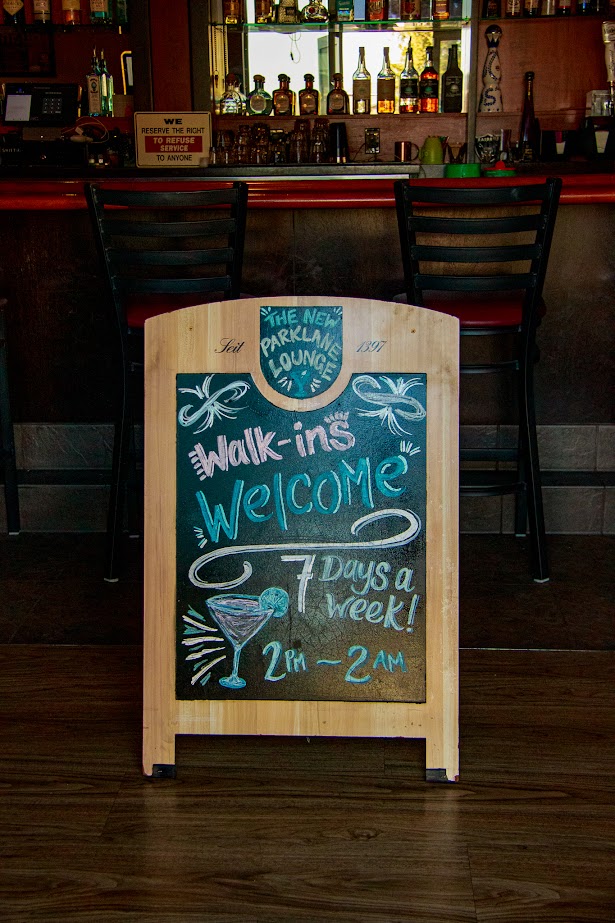 WE
RESERVE THE RIGHT
TO REFUSE
SERVICE
TO ANYONE
THE NEW
PARKLANE
LOUNGE
Seit 1397
Walk-ins
Welcome
7 Days a
Week!
2PM ~ 2AM